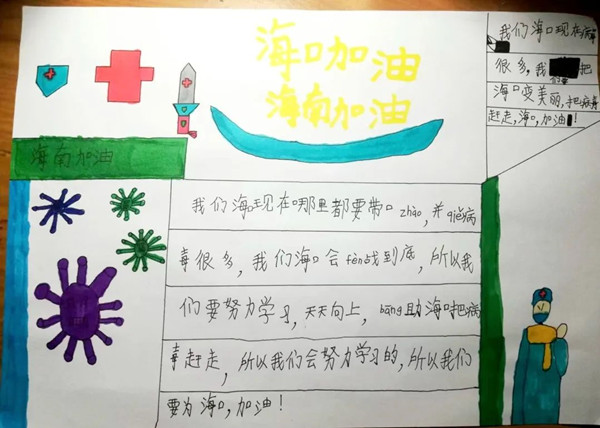 海口加油
海南加油
海南加油
我们海口现在病毒
很多,我把
海口变美丽,把病毒
赶走,海口,加油!
我们海口现在哪里都要带口zhào,并qiě病
毒很多,我们海口会fèn战到底,所以我
们要努力学习,天天向上,bāng助海口把病
毒赶走,所以我们会努力学习的,所以我们
要为海口,加油!